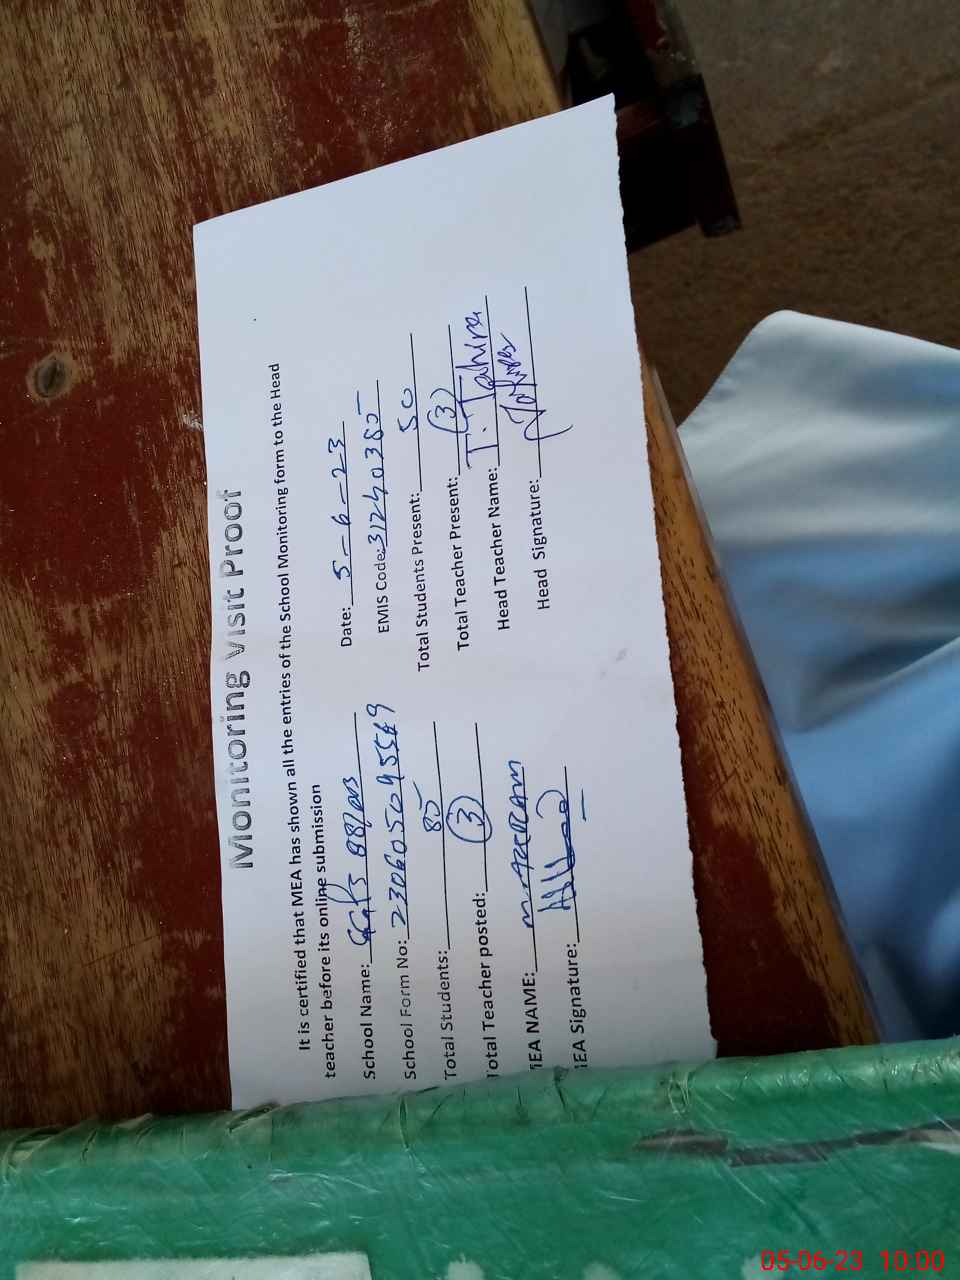 Monitoring Visit Proof
It is certified that MEA has shown all the entries of the School Monitoring form to the Head
teacher before its online submission
School Name: Date: 5-6-23
School Form No: EMIS Code: 31240385
Total Students: 85 Total Students Present: 50
Total Teacher posted: (3) Total Teacher Present: (3)
MEA NAME: Head Teacher Name: T. Tahira
MEA Signature: Head Signature:
05-06-23 10:00